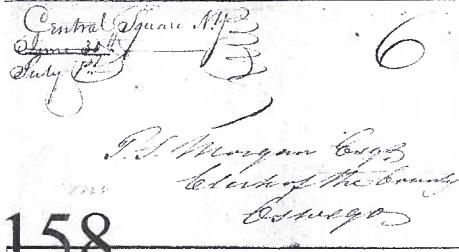 Central Square NY
June 30th
July 1st
6
T. S. Morgan Esqr
Clerk of the County
Oswego
158